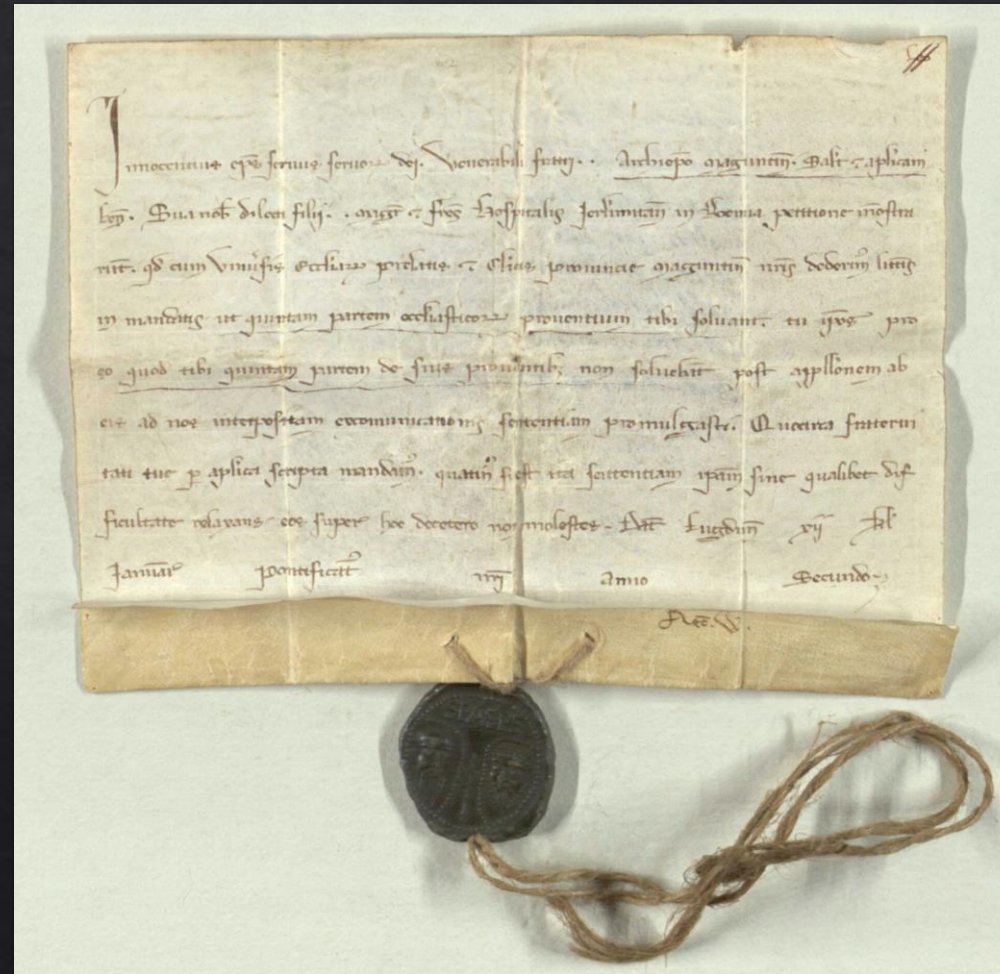 Innocentius eps servus servor dei. Venerabili fratri . . Archiepo maguntin. Salt ⁊ aplicam
ben. Sua nob dilecti filij . . magr ⁊ fres Hospitalis Jerlimitan in Boemia petitione monstra
runt. qd cum Universis eccliarum prelatis ⁊ Clicis provincie maguntin nris dederim littis
in mandatis ut quintam partem eccliasticor proventuum tibi solvant. tu ipos pro
eo quod tibi quintam partem de suis proventib; non solvebant post appllonem ab
eis ad nos interpositam excomunicationis sententiam promulgasti. Quocirca fraterni
tati tue p aplica scripta mandam. quatin si est ita sententiam ipam sine qualibet dif
ficultate relaxans eos super hoc decetero non molestes. Dat Lugdun xij kl
Januar Pontificat nri Anno Secundo.